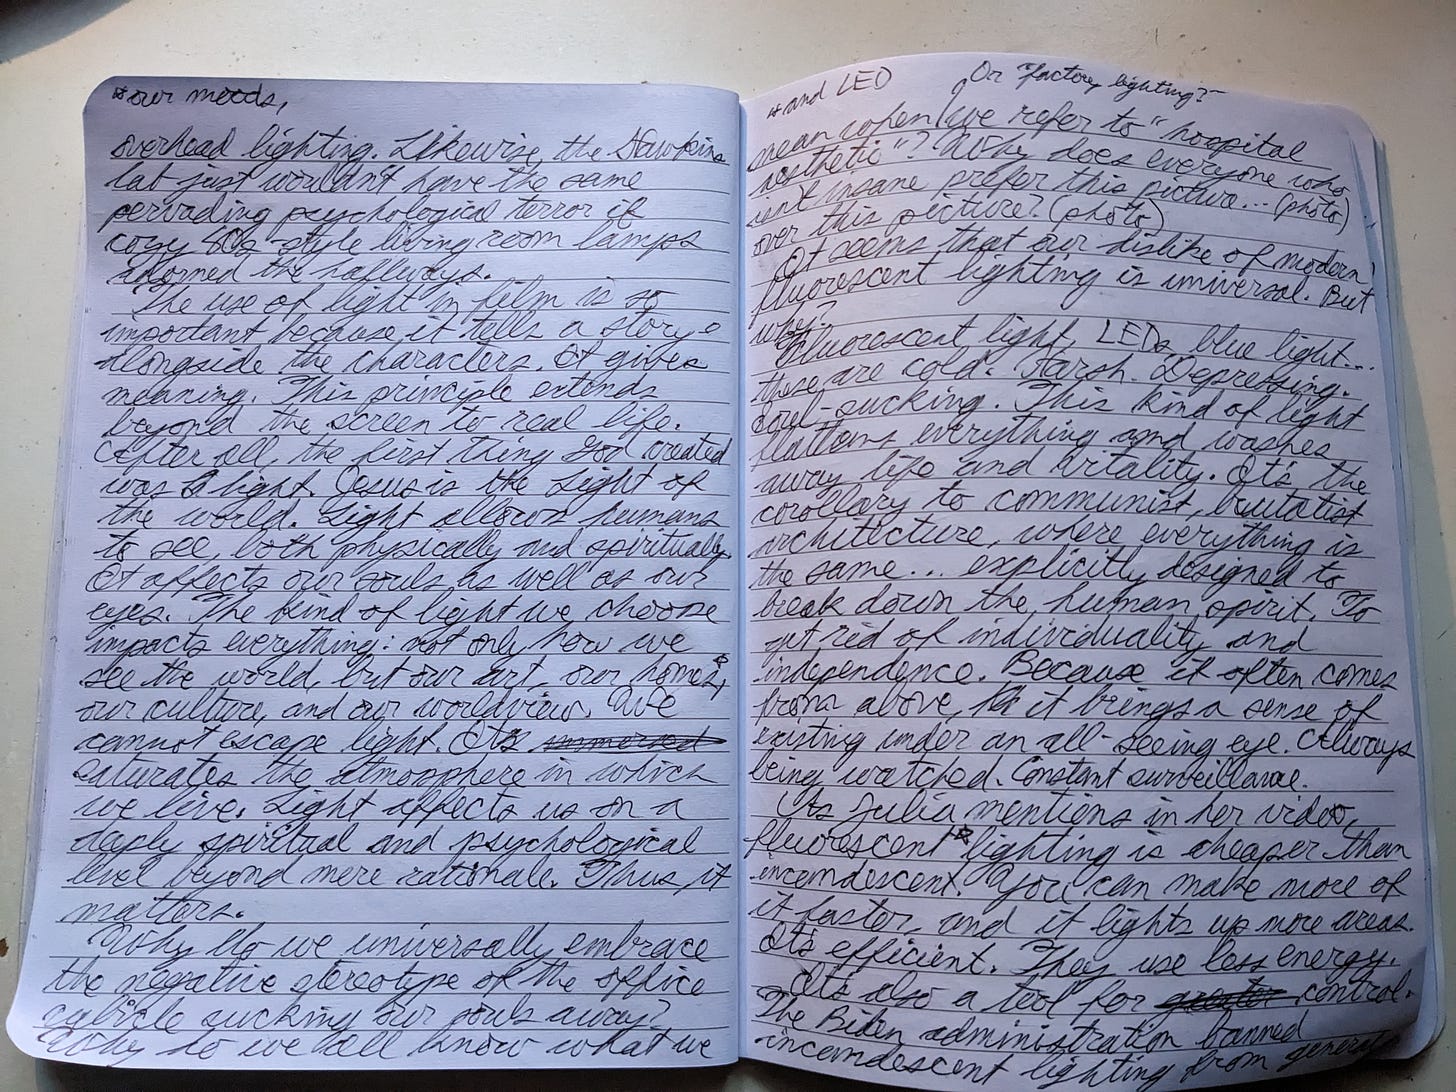 * our moods,
overhead lighting. Likewise, the Hawkins
lab just wouldn't have the same
pervading psychological terror if
cozy 80s-style living room lamps
adorned the hallways.
The use of light in film is so
important because it tells a story
alongside the characters. It gives
meaning. This principle extends
beyond the screen to real life.
After all, the first thing God created
was light. Jesus is the Light of
the world. Light allows humans
to see, both physically and spiritually.
It affects our souls as well as our
eyes. The kind of light we choose
impacts everything: not only how we
see the world, but our art, our homes,*
our culture, and our worldview. We
cannot escape light. It
saturates the atmosphere in which
we live. Light affects us on a
deeply spiritual and psychological
level beyond mere rationale. Thus, it
matters.
Why do we universally embrace
the negative stereotype of the office
cubicle sucking our souls away?
Why do we all know what we
* and LED
Or "factory lighting?"
mean when we refer to "hospital
aesthetic"? Why does everyone who
isn't insane prefer this picture... (photo)
over this picture? (photo)
It seems that our dislike of modern
fluorescent lighting is universal. But
why?
Fluorescent light, LEDs, blue light...
these are cold. Harsh. Depressing.
Soul-sucking. This kind of light
flattens everything and washes
away life and vitality. It's the
corollary to communist, brutalist
architecture, where everything is
the same... explicitly designed to
break down the human spirit. To
get rid of individuality and
independence. Because it often comes
from above, it brings a sense of
existing under an all-seeing eye. Always
being watched. Constant surveillance.
As Julia mentions in her video,
fluorescent* lighting is cheaper than
incandescent. You can make more of
it faster, and it lights up more areas.
It's efficient. They use less energy.
It's also a tool for control.
The Biden administration banned
incandescent lighting from general